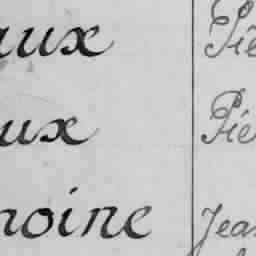 aux Pie
ux Pie
noine Jean